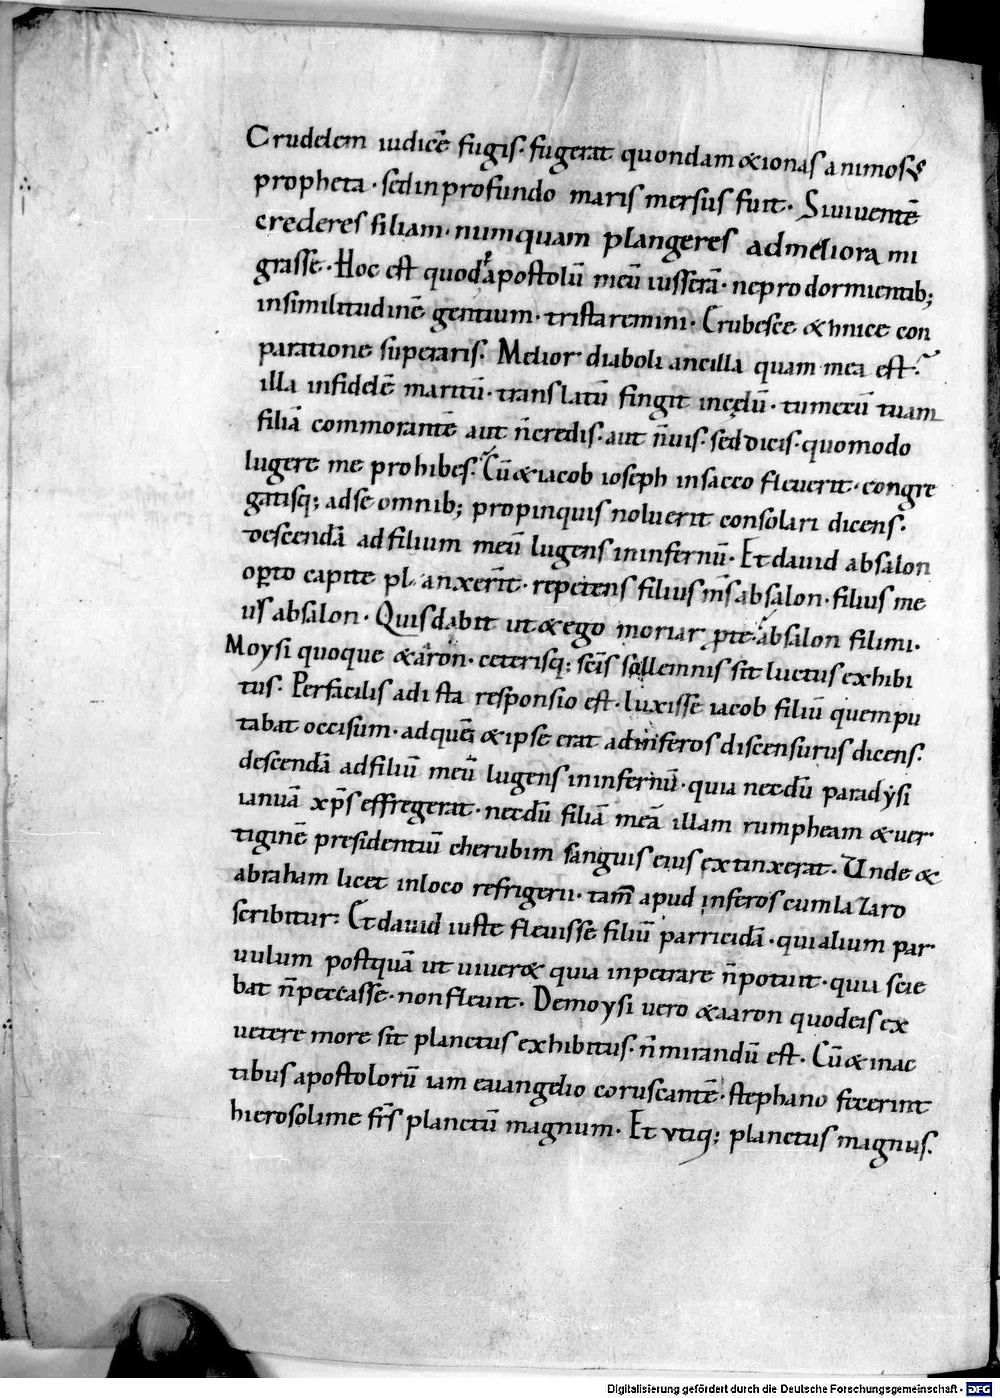 Crudelem iudicē fugis· fugerat quondam & ionas animosꝰ
propheta · sed in profundo maris mersus fuit · Si uiuentē
crederes filiam · numquam plangeres ad meliora mi
grasse · Hoc est quod ꝑ apostolū meū iusserā · ne pro dormientib;
in similitudinē gentium · tristaremini · Erubesce ethnice con
paratione superaris. Melior diaboli ancilla quam mea est ·
illa infidelē maritū · translatū fingit in cęlū · tu mecū tuam
filiā commorantē aut n̄ credis · aut n̄ uis · sed dicis · quomodo
lugere me prohibes · Cū & iacob ioseph in sacco fleuerit · congre
gatisq; ad se omnib; propinquis noluerit consolari dicens ·
descendā ad filium meū lugens in infernū · Et dauid absalon
oꝑto capite planxerit · repetens filius m̄s absalon · filius me
us absalon · Quis dabit ut & ego moriar ꝓ te absalon fili mi ·
Moysi quoque & aaron · ceterisq; sc̄is sollemnis sit luctus exhibi
tus · Perfacilis ad ista responsio est · luxisse iacob filiū quem pu
tabat occisum · ad quē & ipse erat ad inferos discensurus dicens ·
descendā ad filiū meū lugens in infernū · quia necdū paradysi
ianuā xp̄s effregerat · necdū filiā meā illam rumpheam & uer
tiginē presidentiū cherubim sanguis eius extinxerat · Unde &
abraham licet in loco refrigerii · tam̄ apud inferos cum lazaro
scribitur: Et dauid iuste fleuisse filiū parricidā · qui alium par
uulum postquā ut uiueret quia inpetrare n̄ potuit · quia scie
bat n̄ peccasse · non fleuit · De moysi uero & aaron quod eis ex
uetere more sit planctus exhibitus · n̄ mirandū est · Cū & in ac
tibus apostolorū iam euangelio coruscante · stephano fecerint
hierosolime fr̄s planctū magnum · Et utiq; planctus magnus ·
Digitalisierung gefördert durch die Deutsche Forschungsgemeinschaft - DFG